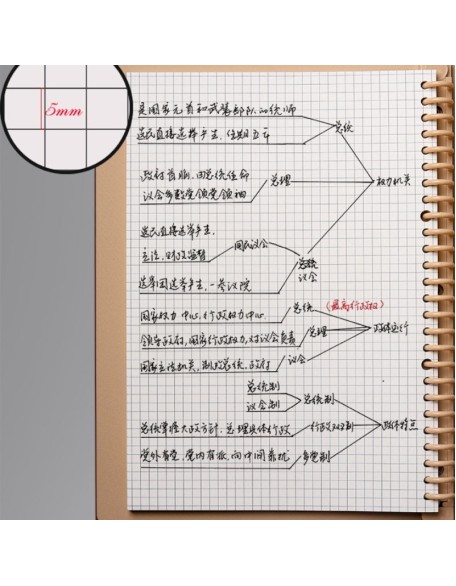 5mm
是国家元首和武装部队的统帅
选民直接选举产生、任期五年
总统
政府首脑,由总统任命
议会多数党领党领袖
总理
权力机关
选民直接选举产生
立法、财政监督
国民议会
选举团选举产生,—参议院
议会
国家权力中心,行政权力中心
总统
(最高行政权)
领导政府,国家行政权力,对议会负责
总理
政体运行
国家立法机关,制约总统、政府
议会
总统制
议会制
总统制
总统掌握大政方针、总理具体行政
行政双头制
政体特点
党外有党,党内有派,向中间靠拢
多党制